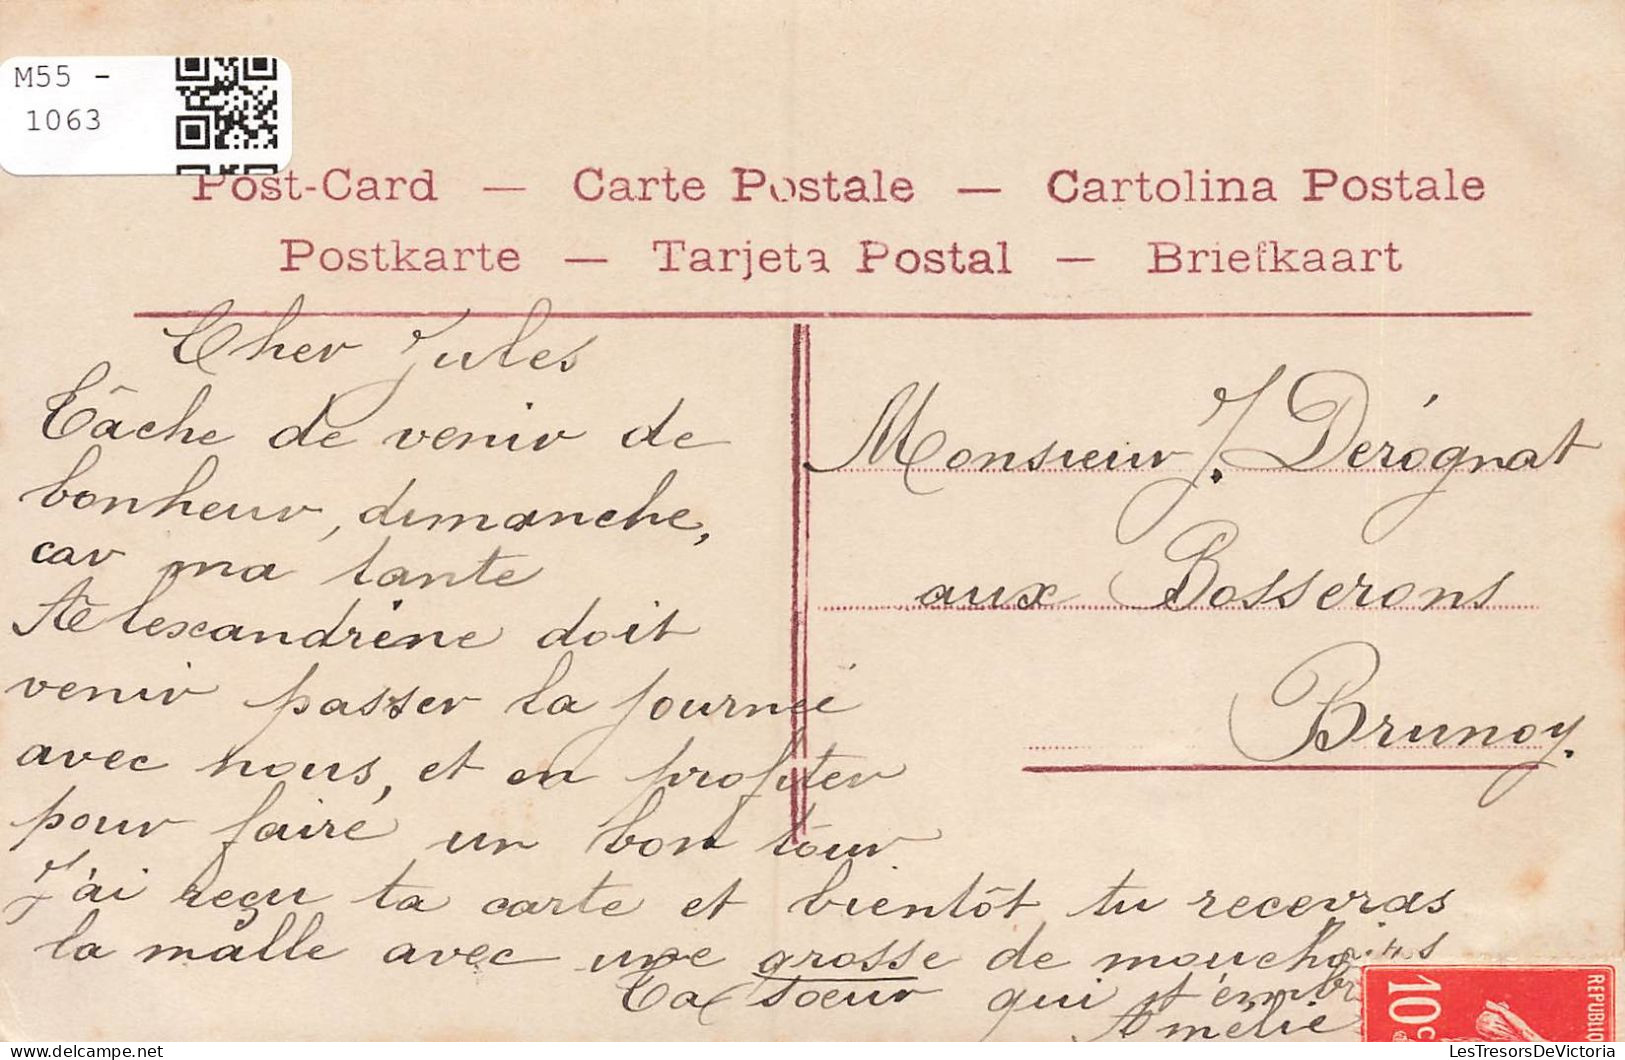 M55 -
1063
Post-Card — Carte Postale — Cartolina Postale
Postkarte — Tarjeta Postal — Briefkaart
Cher Jules
Tâche de venir de
bonheur, dimanche,
car ma tante
Alexandrine doit
venir passer la journée
avec nous, et en profiter
pour faire un bon tour
J'ai reçu ta carte et bientôt tu recevras
la malle avec une grosse de mouchoirs
Ta sœur qui t'embr
Amélie
Monsieur J. Dérognat
aux Bosserons
Brunoy.
10c
REPUBLIQ
LesTresorsDeVictoria
www.delcampe.net